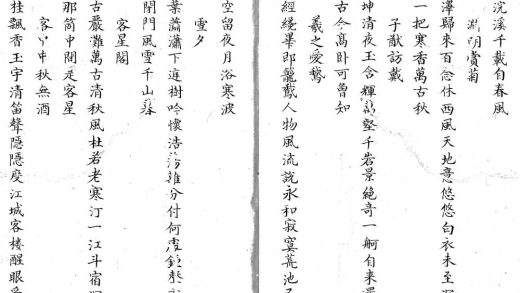 浣溪千載自春風
淵明賞菊
澤歸來百念休西風天地意悠悠白衣未至
一把寒香萬古秋
子猷訪戴
坤清夜玉含輝萬壑千岩景絕奇一舸自來
古今高卧可曾知
羲之愛鵞
經纔畢即籠人物風流說永和寂寞荒池
空留夜月浴寒波
雪夕
葉蕭蕭下遶樹吟懷浩蕩難分付何處鐘聲
閉門風雪千山暮
客星閣
古嚴灘萬古清秋風杜若老寒汀一江斗宿
那箇中間是客星
客中中秋無酒
桂飄香玉宇清笛聲隱隱度江城客樓醒眼